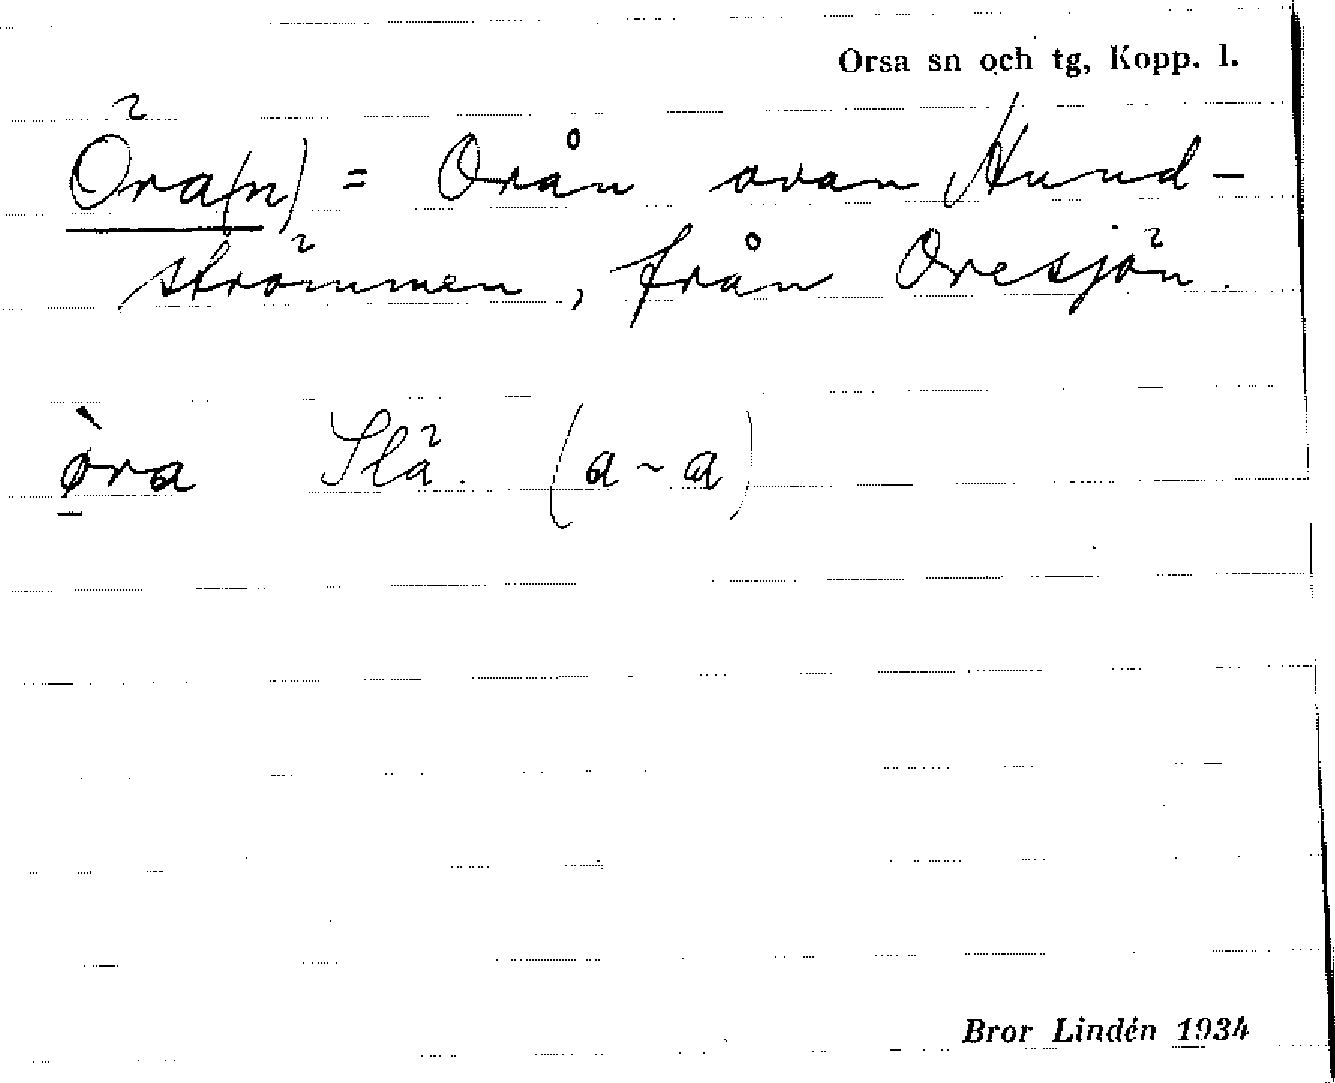 Orsa sn och tg, Kopp. l.
Öra(n) = Orån ovan Hund-
strömmen, från Oresjön.
ø̀ra Slä. (a ~ a)
Bror Lindén 1934